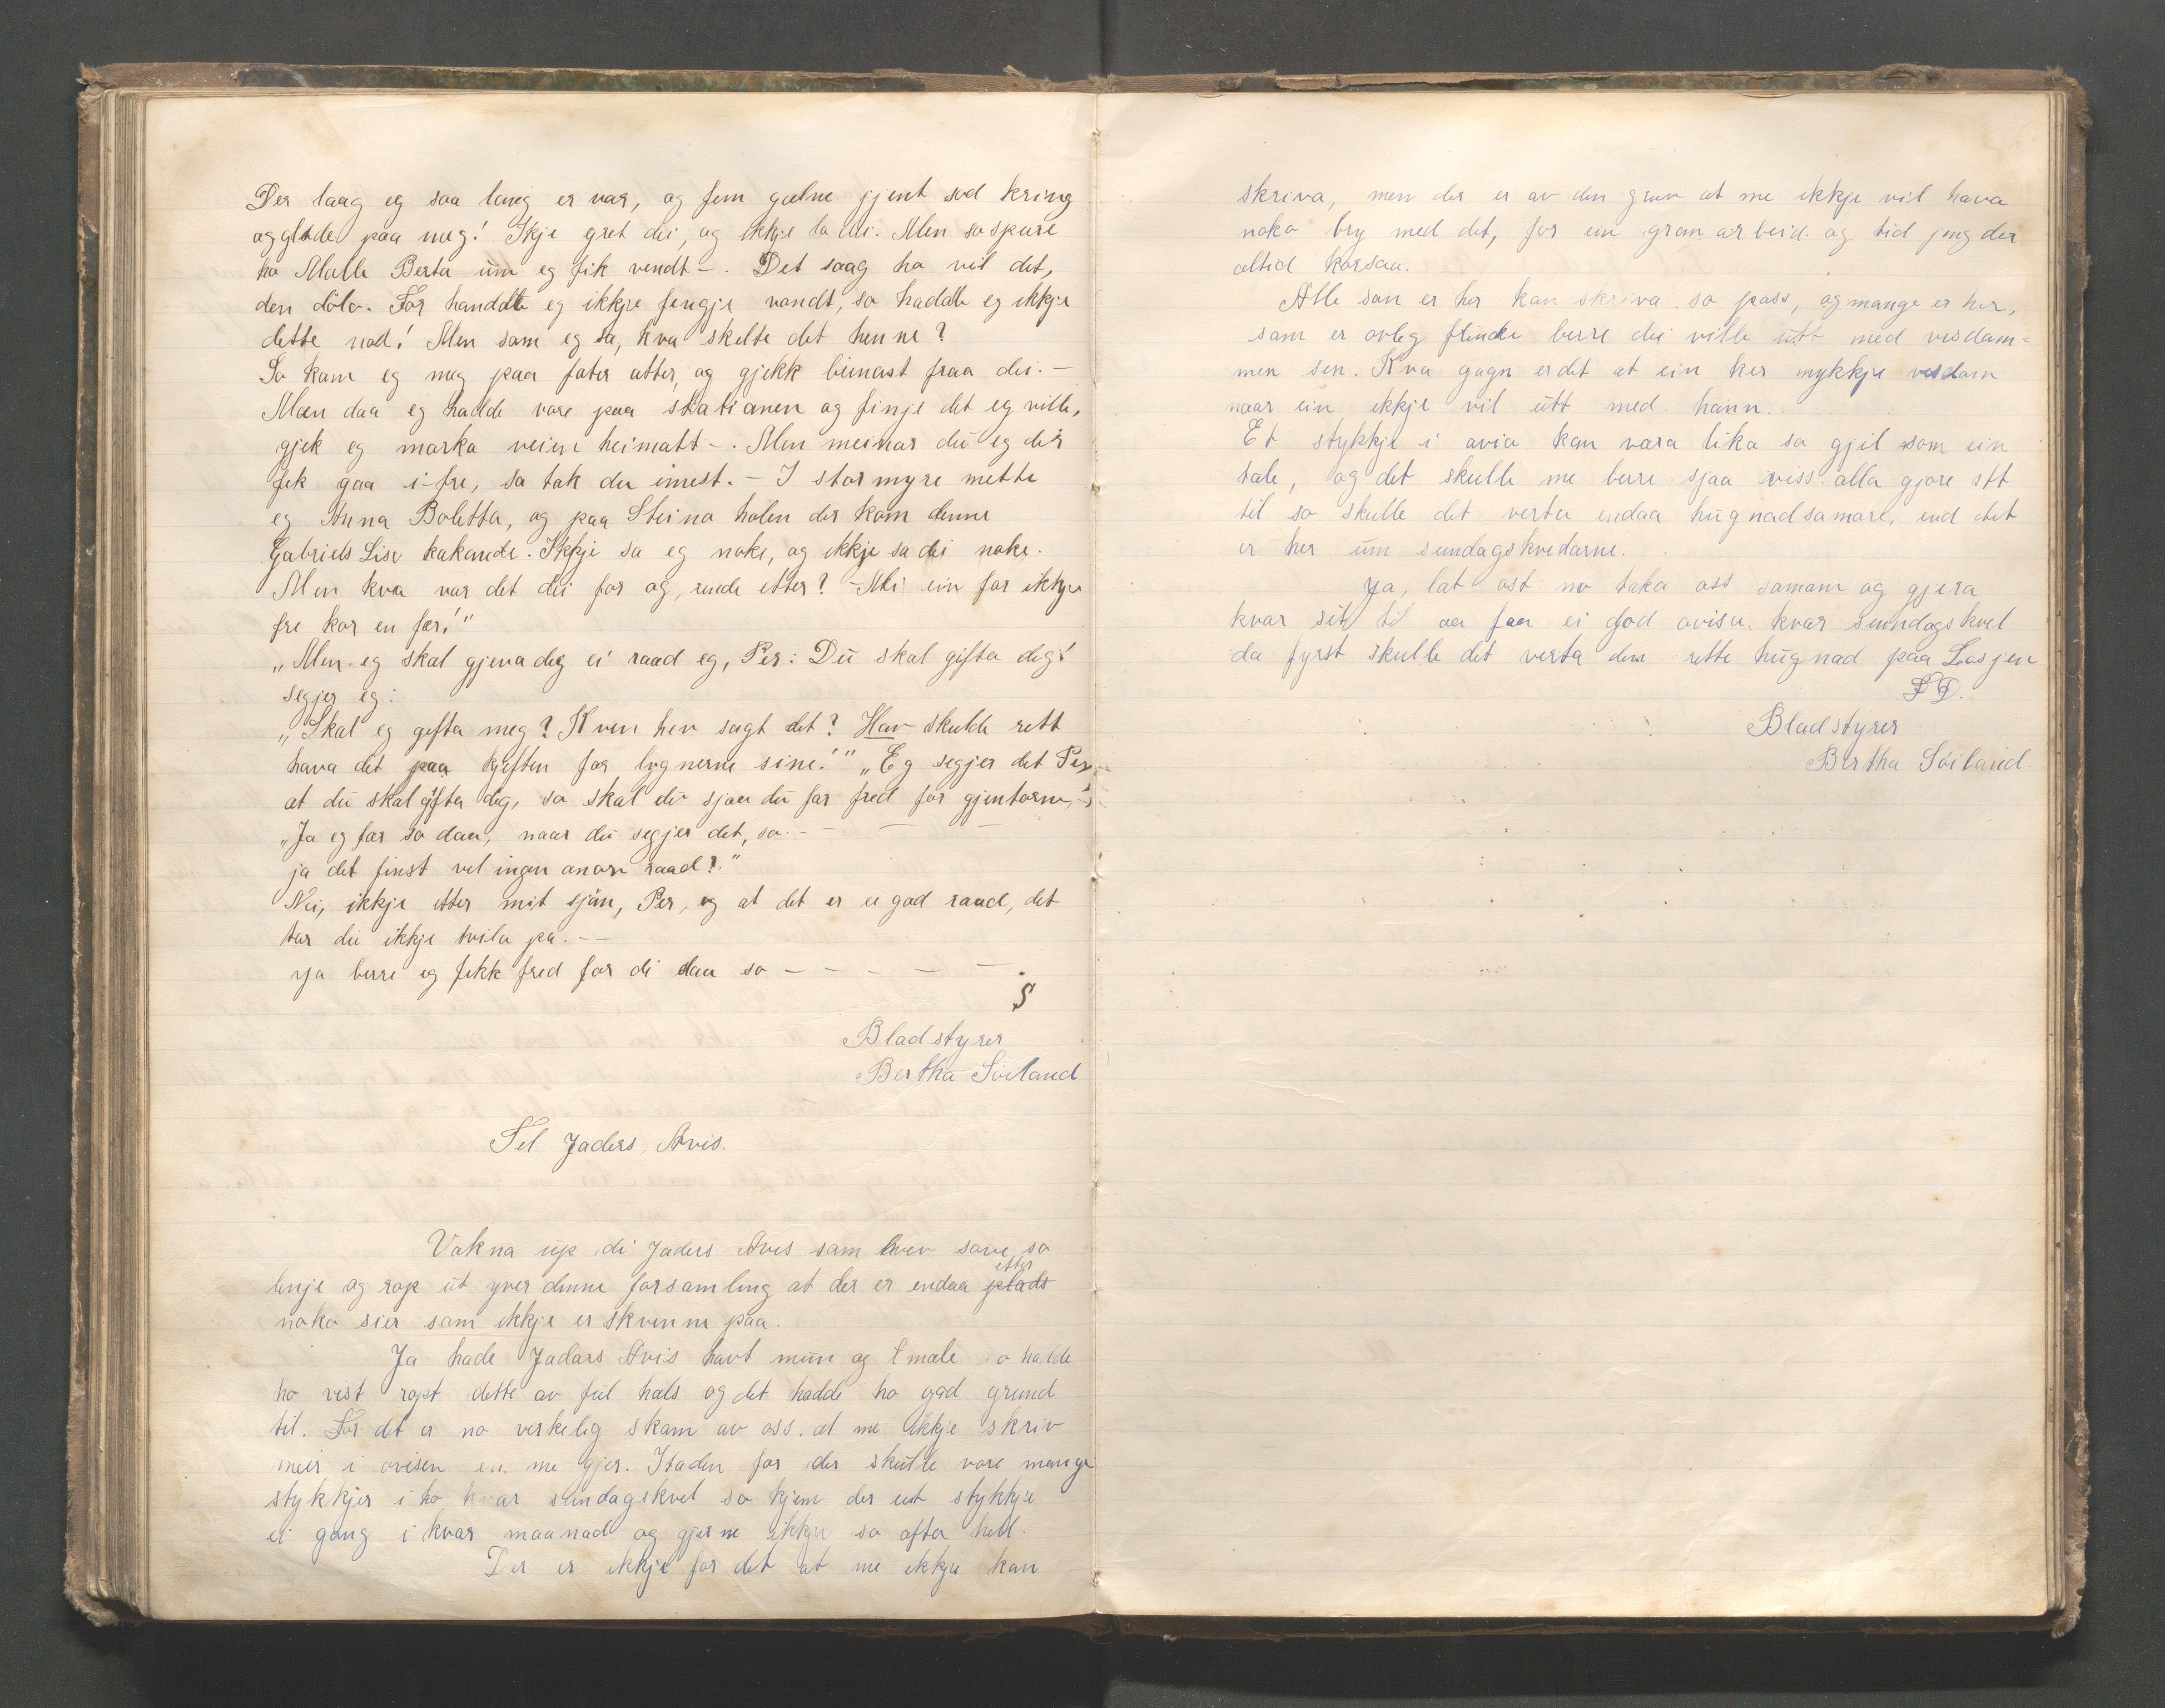 Der laag eg saa lang er var, og fem gælne jjent sod kring
og glode paa meg! Ikje gret dei, og ikkje lo dei. Men so spure
ho Malle Berta üm eg fik vendt -. Det saag ho vil det,
den dölo. For handdle eg ikkje fengje vondt, so hadde eg ikkje
dette nod! Men som eg sa, kva skelte det henne?
So kom eg meg paa foter atter, og gjekk beinast fraa dei. -
Men daa eg hadde vore paa stationen og finje det eg ville,
gjek eg marka veien heimatt -. Men meinar dü eg der
fek gaa i-fre, sa tak du imest. - I stormyre mette
eg Anna Boletta, og paa Steina holen der kom denne
Gabriels Lise kakande. Ikkje sa eg noke, og ikkje sa dei noke.
Men kva var det dei for og, rende etter? - Nei ein far ikkje
fre kor en fær!"
"Men eg skal gjeva deg ei raad eg, Per: Dü skal gifta deg!
segjer eg:
"Skal eg gifta meg? Kven hev sagt det? Han skulde rett
hava det paa kjeften for lygnerne sine!" "Eg segjer det Per
at dü skal gifta deg, so skal du sjaa dü far fred for gjentorne,"
"Ja eg fær so daa, naar dü segjer det, so. - - -
ja det finst vel ingen anora raad?"
Nei, ikkje etter mit sjön, Per, og at det er ei god raad, det
tar dü ikkje tvila på. - -
Ja berre eg fekk fred for di daa so - - - - -
S
Bladstyrer
Bertha Söiland
Tel Jaders Avis.
Vakna üp di Jaders Avis som hev sove so
lenje og rop üt yver denne forsamling at der er endaa plads etter
noko sier som ikkje er skvenne paa.
Ja hade Jadars Avis havt mün og maale so hadde
ho vist ropt dette av fül hals og det hadde ho god grund
til. For det er no verkelig skam av oss, at me ikkje skriv
meir i avisen en me gjer. Istaden for der skulle vore mange
stykkjer i ho kvar sündagskvel so kjem der eit stykkje
ei gong i kvar maanad og gjerne ikkje so ofta hell.
Der er ikkje for det at me ikkje kan
skriva, men der er av den grun at me ikkje vil hava
noko bry med det, for ein gran arbeid og tid jeng der
altid korsaa.
Alle som er her kan skriva so pass, og mange er her,
som er ovleg flinke berre dei ville ütt med visdom-
men sin. Kva gagn er det at ein her mykkje visdom
naar ein ikkje vil ütt med hann.
Et stykkje i avio kan vara lika so gjil som ein
tale, og det skulle me berre sjaa viss alla gjore stt
til so skulle det verta endaa hügnadsamare, end det
er her üm sundagskvedarne.
Ja, lat ost no taka oss saman og gjera
kvar sit til aa faa ei god avisa kvar sunndagskvel
da fyrst skulle det verta den rette hügnad paa Losjen
Bladstyrer
Bertha Söiland.